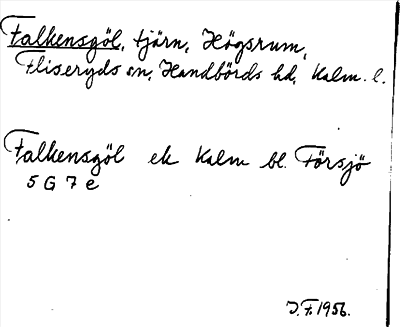 Falkensgöl, tjärn, Högsrum,
Fliseryds sn, Handbörds hd, Kalm. l.
Falkensgöl ek Kalm bl. Försjö
5 G 7 e
J. F. 1956.